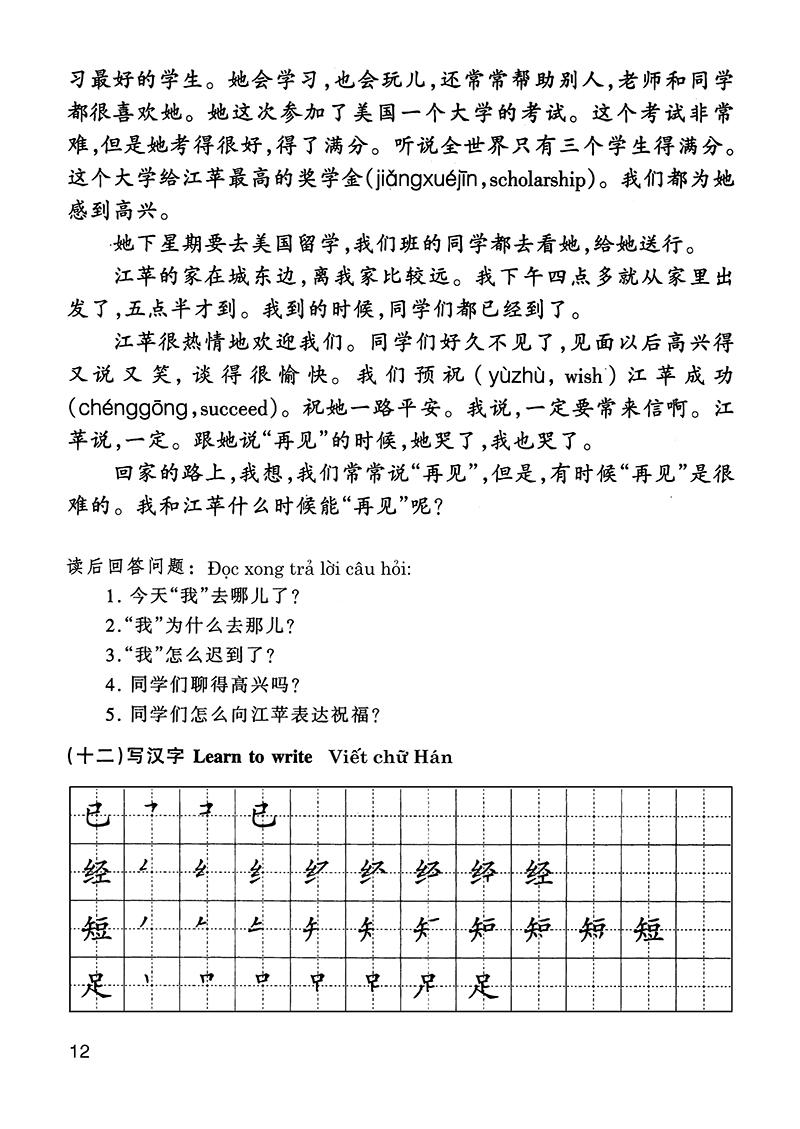 习最好的学生。她会学习,也会玩儿,还常常帮助别人,老师和同学
都很喜欢她。她这次参加了美国一个大学的考试。这个考试非常
难,但是她考得很好,得了满分。听说全世界只有三个学生得满分。
这个大学给江苹最高的奖学金(jiǎngxuéjīn,scholarship)。我们都为她
感到高兴。
她下星期要去美国留学,我们班的同学都去看她,给她送行。
江苹的家在城东边,离我家比较远。我下午四点多就从家里出
发了,五点半才到。我到的时候,同学们都已经到了。
江苹很热情地欢迎我们。同学们好久不见了,见面以后高兴得
又说又笑,谈得很愉快。我们预祝(yùzhù, wish)江苹成功
(chénggōng,succeed)。祝她一路平安。我说,一定要常来信啊。江
苹说,一定。跟她说“再见”的时候,她哭了,我也哭了。
回家的路上,我想,我们常常说“再见”,但是,有时候“再见”是很
难的。我和江苹什么时候能“再见”呢?
读后回答问题: Đọc xong trả lời câu hỏi:
1. 今天“我”去哪儿了?
2.“我”为什么去那儿?
3.“我”怎么迟到了?
4. 同学们聊得高兴吗?
5. 同学们怎么向江苹表达祝福?
(十二)写汉字 Learn to write Viết chữ Hán
已 已
经 经
短 短
足 足
12